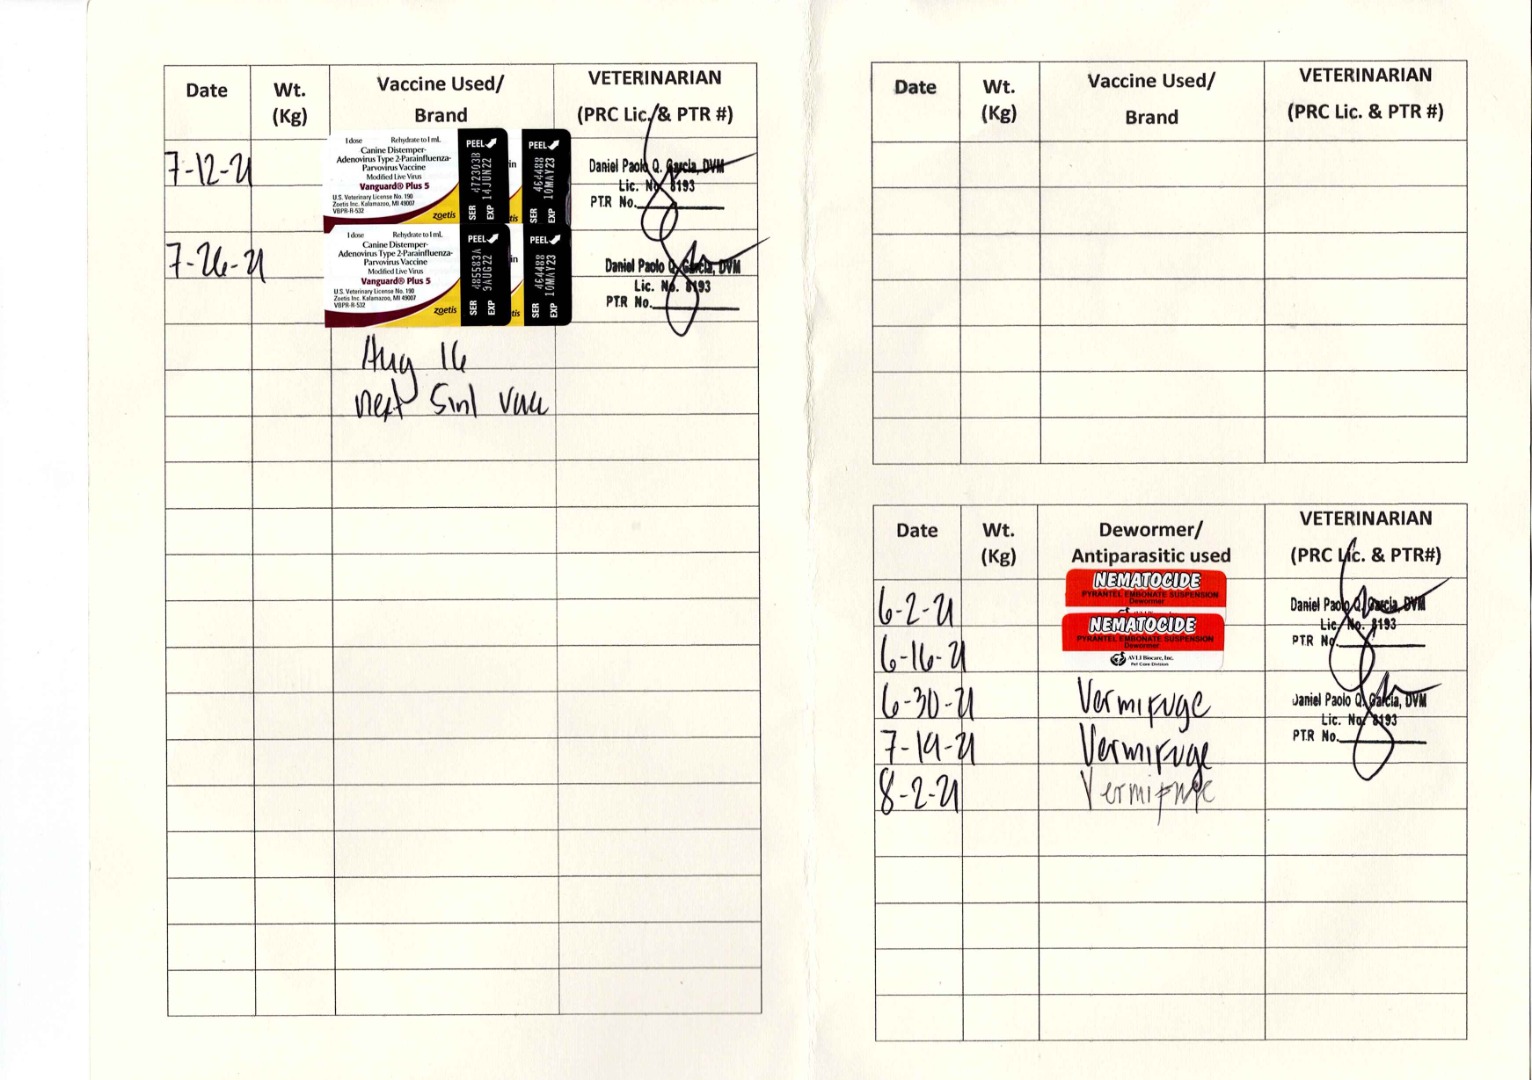 Date Wt. (Kg) Vaccine Used/ Brand VETERINARIAN (PRC Lic. & PTR #)
7-12-21
1 dose Rehydrate to 1 mL
Canine Distemper-
Adenovirus Type 2-Parainfluenza-
Parvovirus Vaccine
Modified Live Virus
Vanguard® Plus 5
U.S. Veterinary License No. 190
Zoetis Inc. Kalamazoo, MI 49007
VBPR-R-532
zoetis
PEEL
SER 472303B
EXP 14JUN22
in
tis
PEEL
SER 464488
EXP 10MAY23
Daniel Paolo Q. Garcia, DVM
Lic. No. 8193
PTR No.
7-26-21
1 dose Rehydrate to 1 mL
Canine Distemper-
Adenovirus Type 2-Parainfluenza-
Parvovirus Vaccine
Modified Live Virus
Vanguard® Plus 5
U.S. Veterinary License No. 190
Zoetis Inc. Kalamazoo, MI 49007
VBPR-R-532
zoetis
PEEL
SER 485583A
EXP 3AUG22
in
tis
PEEL
SER 464488
EXP 10MAY23
Daniel Paolo Q. Garcia, DVM
Lic. No. 8193
PTR No.
Aug 16
next 5in1 vacc
Date Wt. (Kg) Vaccine Used/ Brand VETERINARIAN (PRC Lic. & PTR #)
Date Wt. (Kg) Dewormer/ Antiparasitic used VETERINARIAN (PRC Lic. & PTR#)
6-2-21
NEMATOCIDE
PYRANTEL EMBONATE SUSPENSION
Dewormer
Daniel Paolo Q. Garcia, DVM
Lic. No. 8193
PTR No.
6-16-21
NEMATOCIDE
PYRANTEL EMBONATE SUSPENSION
Dewormer
AVLI Biocare, Inc.
Pet Care Division
6-30-21 Vermifuge
Daniel Paolo Q. Garcia, DVM
Lic. No. 8193
PTR No.
7-19-21 Vermifuge
8-2-21 Vermifuge